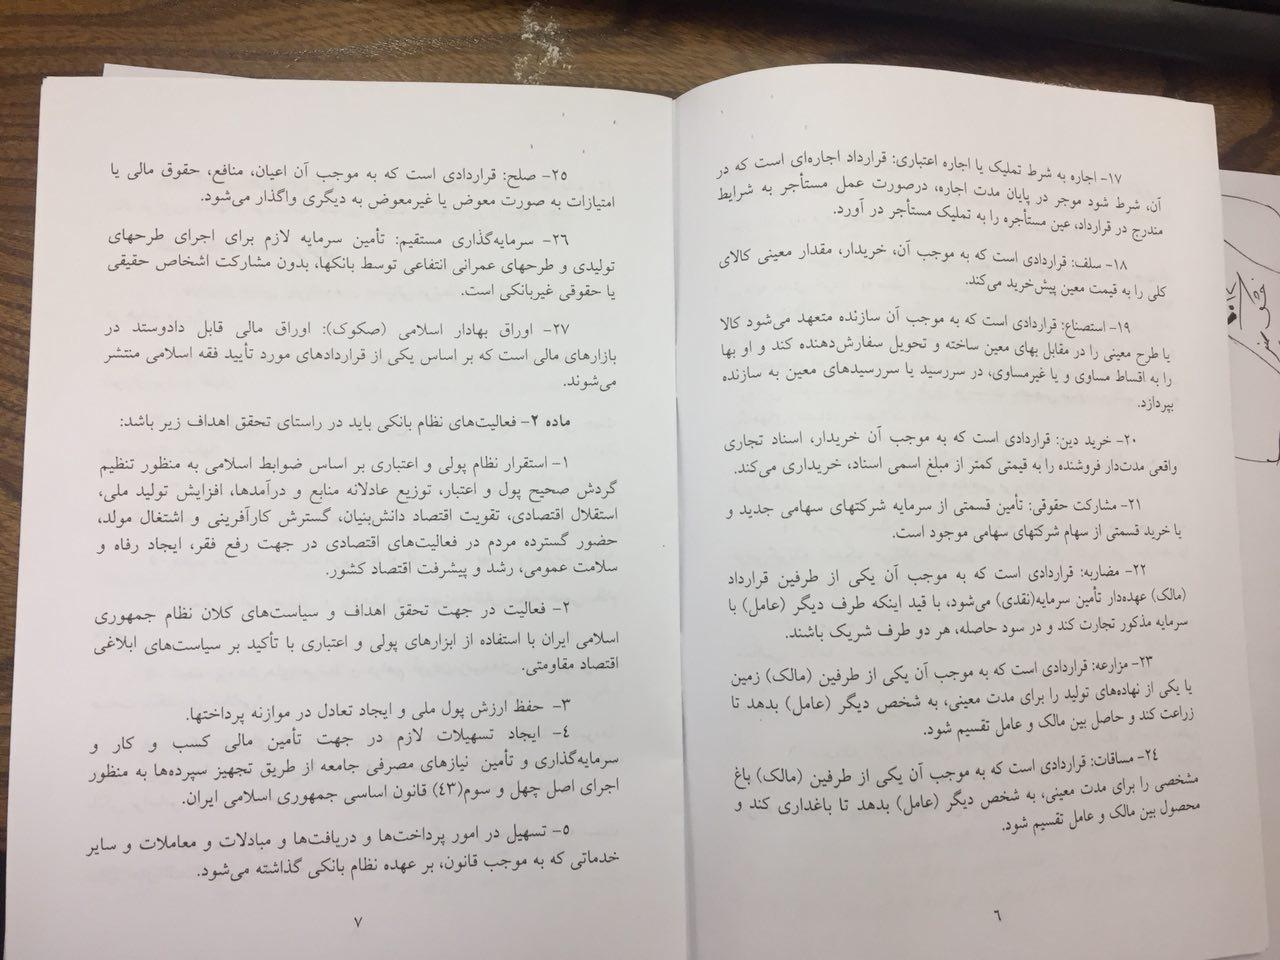 ۱۷- اجاره به شرط تملیک یا اجاره اعتباری: قرارداد اجاره‌ای است که در
آن، شرط شود موجر در پایان مدت اجاره، درصورت عمل مستأجر به شرایط
مندرج در قرارداد، عین مستأجره را به تملیک مستأجر در آورد.
۱۸- سلف: قراردادی است که به موجب آن، خریدار، مقدار معینی کالای
کلی را به قیمت معین پیش‌خرید می‌کند.
۱۹- استصناع: قراردادی است که به موجب آن سازنده متعهد می‌شود کالا
یا طرح معینی را در مقابل بهای معین ساخته و تحویل سفارش‌دهنده کند و او بها
را به اقساط مساوی و یا غیرمساوی، در سررسید یا سررسیدهای معین به سازنده
بپردازد.
۲۰- خرید دین: قراردادی است که به موجب آن خریدار، اسناد تجاری
واقعی مدت‌دار فروشنده را به قیمتی کمتر از مبلغ اسمی اسناد، خریداری می‌کند.
۲۱- مشارکت حقوقی: تأمین قسمتی از سرمایه شرکتهای سهامی جدید و
یا خرید قسمتی از سهام شرکتهای سهامی موجود است.
۲۲- مضاربه: قراردادی است که به موجب آن یکی از طرفین قرارداد
(مالک) عهده‌دار تأمین سرمایه(نقدی) می‌شود، با قید اینکه طرف دیگر (عامل) با
سرمایه مذکور تجارت کند و در سود حاصله، هر دو طرف شریک باشند.
۲۳- مزارعه: قراردادی است که به موجب آن یکی از طرفین (مالک) زمین
یا یکی از نهاده‌های تولید را برای مدت معینی، به شخص دیگر (عامل) بدهد تا
زراعت کند و حاصل بین مالک و عامل تقسیم شود.
۲۴- مساقات: قراردادی است که به موجب آن یکی از طرفین (مالک) باغ
مشخصی را برای مدت معینی، به شخص دیگر (عامل) بدهد تا باغداری کند و
محصول بین مالک و عامل تقسیم شود.
۶
۲۵- صلح: قراردادی است که به موجب آن اعیان، منافع، حقوق مالی یا
امتیازات به صورت معوض یا غیرمعوض به دیگری واگذار می‌شود.
۲۶- سرمایه‌گذاری مستقیم: تأمین سرمایه لازم برای اجرای طرحهای
تولیدی و طرحهای عمرانی انتفاعی توسط بانکها، بدون مشارکت اشخاص حقیقی
یا حقوقی غیربانکی است.
۲۷- اوراق بهادار اسلامی (صکوک): اوراق مالی قابل دادوستد در
بازارهای مالی است که بر اساس یکی از قراردادهای مورد تأیید فقه اسلامی منتشر
می‌شوند.
ماده ۲- فعالیت‌های نظام بانکی باید در راستای تحقق اهداف زیر باشد:
۱- استقرار نظام پولی و اعتباری بر اساس ضوابط اسلامی به منظور تنظیم
گردش صحیح پول و اعتبار، توزیع عادلانه منابع و درآمدها، افزایش تولید ملی،
استقلال اقتصادی، تقویت اقتصاد دانش‌بنیان، گسترش کارآفرینی و اشتغال مولد،
حضور گسترده مردم در فعالیت‌های اقتصادی در جهت رفع فقر، ایجاد رفاه و
سلامت عمومی، رشد و پیشرفت اقتصاد کشور.
۲- فعالیت در جهت تحقق اهداف و سیاست‌های کلان نظام جمهوری
اسلامی ایران با استفاده از ابزارهای پولی و اعتباری با تأکید بر سیاست‌های ابلاغی
اقتصاد مقاومتی.
۳- حفظ ارزش پول ملی و ایجاد تعادل در موازنه پرداختها.
۴- ایجاد تسهیلات لازم در جهت تأمین مالی کسب و کار و
سرمایه‌گذاری و تأمین نیازهای مصرفی جامعه از طریق تجهیز سپرده‌ها به منظور
اجرای اصل چهل و سوم(۴۳) قانون اساسی جمهوری اسلامی ایران.
۵- تسهیل در امور پرداخت‌ها و دریافت‌ها و مبادلات و معاملات و سایر
خدماتی که به موجب قانون، بر عهده نظام بانکی گذاشته می‌شود.
۷